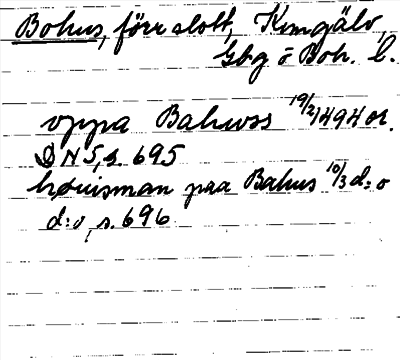 Bohus, förr slott, Kungälv,
Gbg o Boh. l.
vppa Bahwss 19/2 1494 or.
DN 5, s. 695
høuisman paa Bahus 10/3 d:o
d:o, s. 696